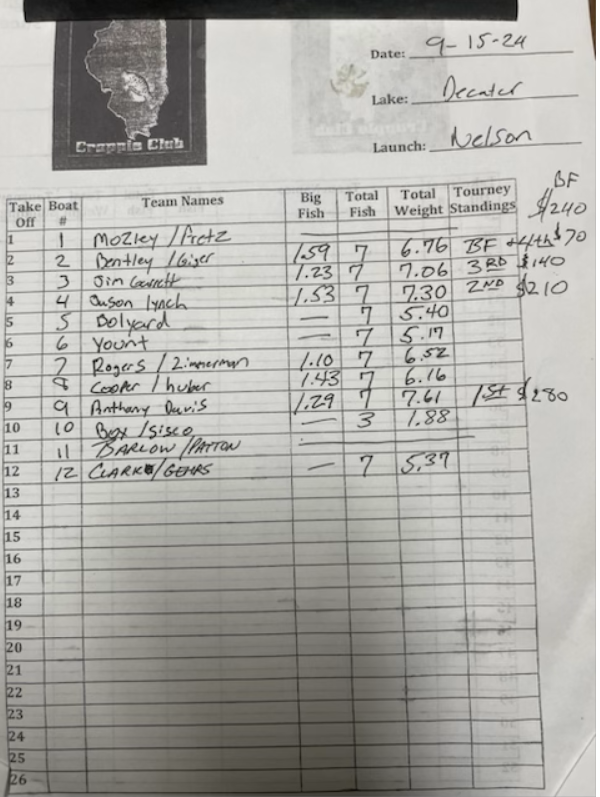 Crappie Club
Date: 9-15-24
Lake: Decatur
Launch: Nelson
BF
$240
Take Off Boat # Team Names Big Fish Total Fish Total Weight Tourney Standings
1 1 Mozley / Fretz
2 2 Bentley / Giger 1.59 7 6.76 BF +4th $70
3 3 Jim Garrett 1.23 7 7.06 3RD $140
4 4 Jason Lynch 1.53 7 7.30 2ND $210
5 5 Bolyard — 7 5.40
6 6 Yount — 7 5.17
7 7 Rogers / Zimmerman 1.10 7 6.52
8 8 Cooper / huber 1.43 7 6.16
9 9 Anthony Davis 1.29 7 7.61 1st $280
10 10 Box / Sisco — 3 1.88
11 11 BARLOW / PATTON
12 12 CLARK / GEHRS — 7 5.37
13
14
15
16
17
18
19
20
21
22
23
24
25
26